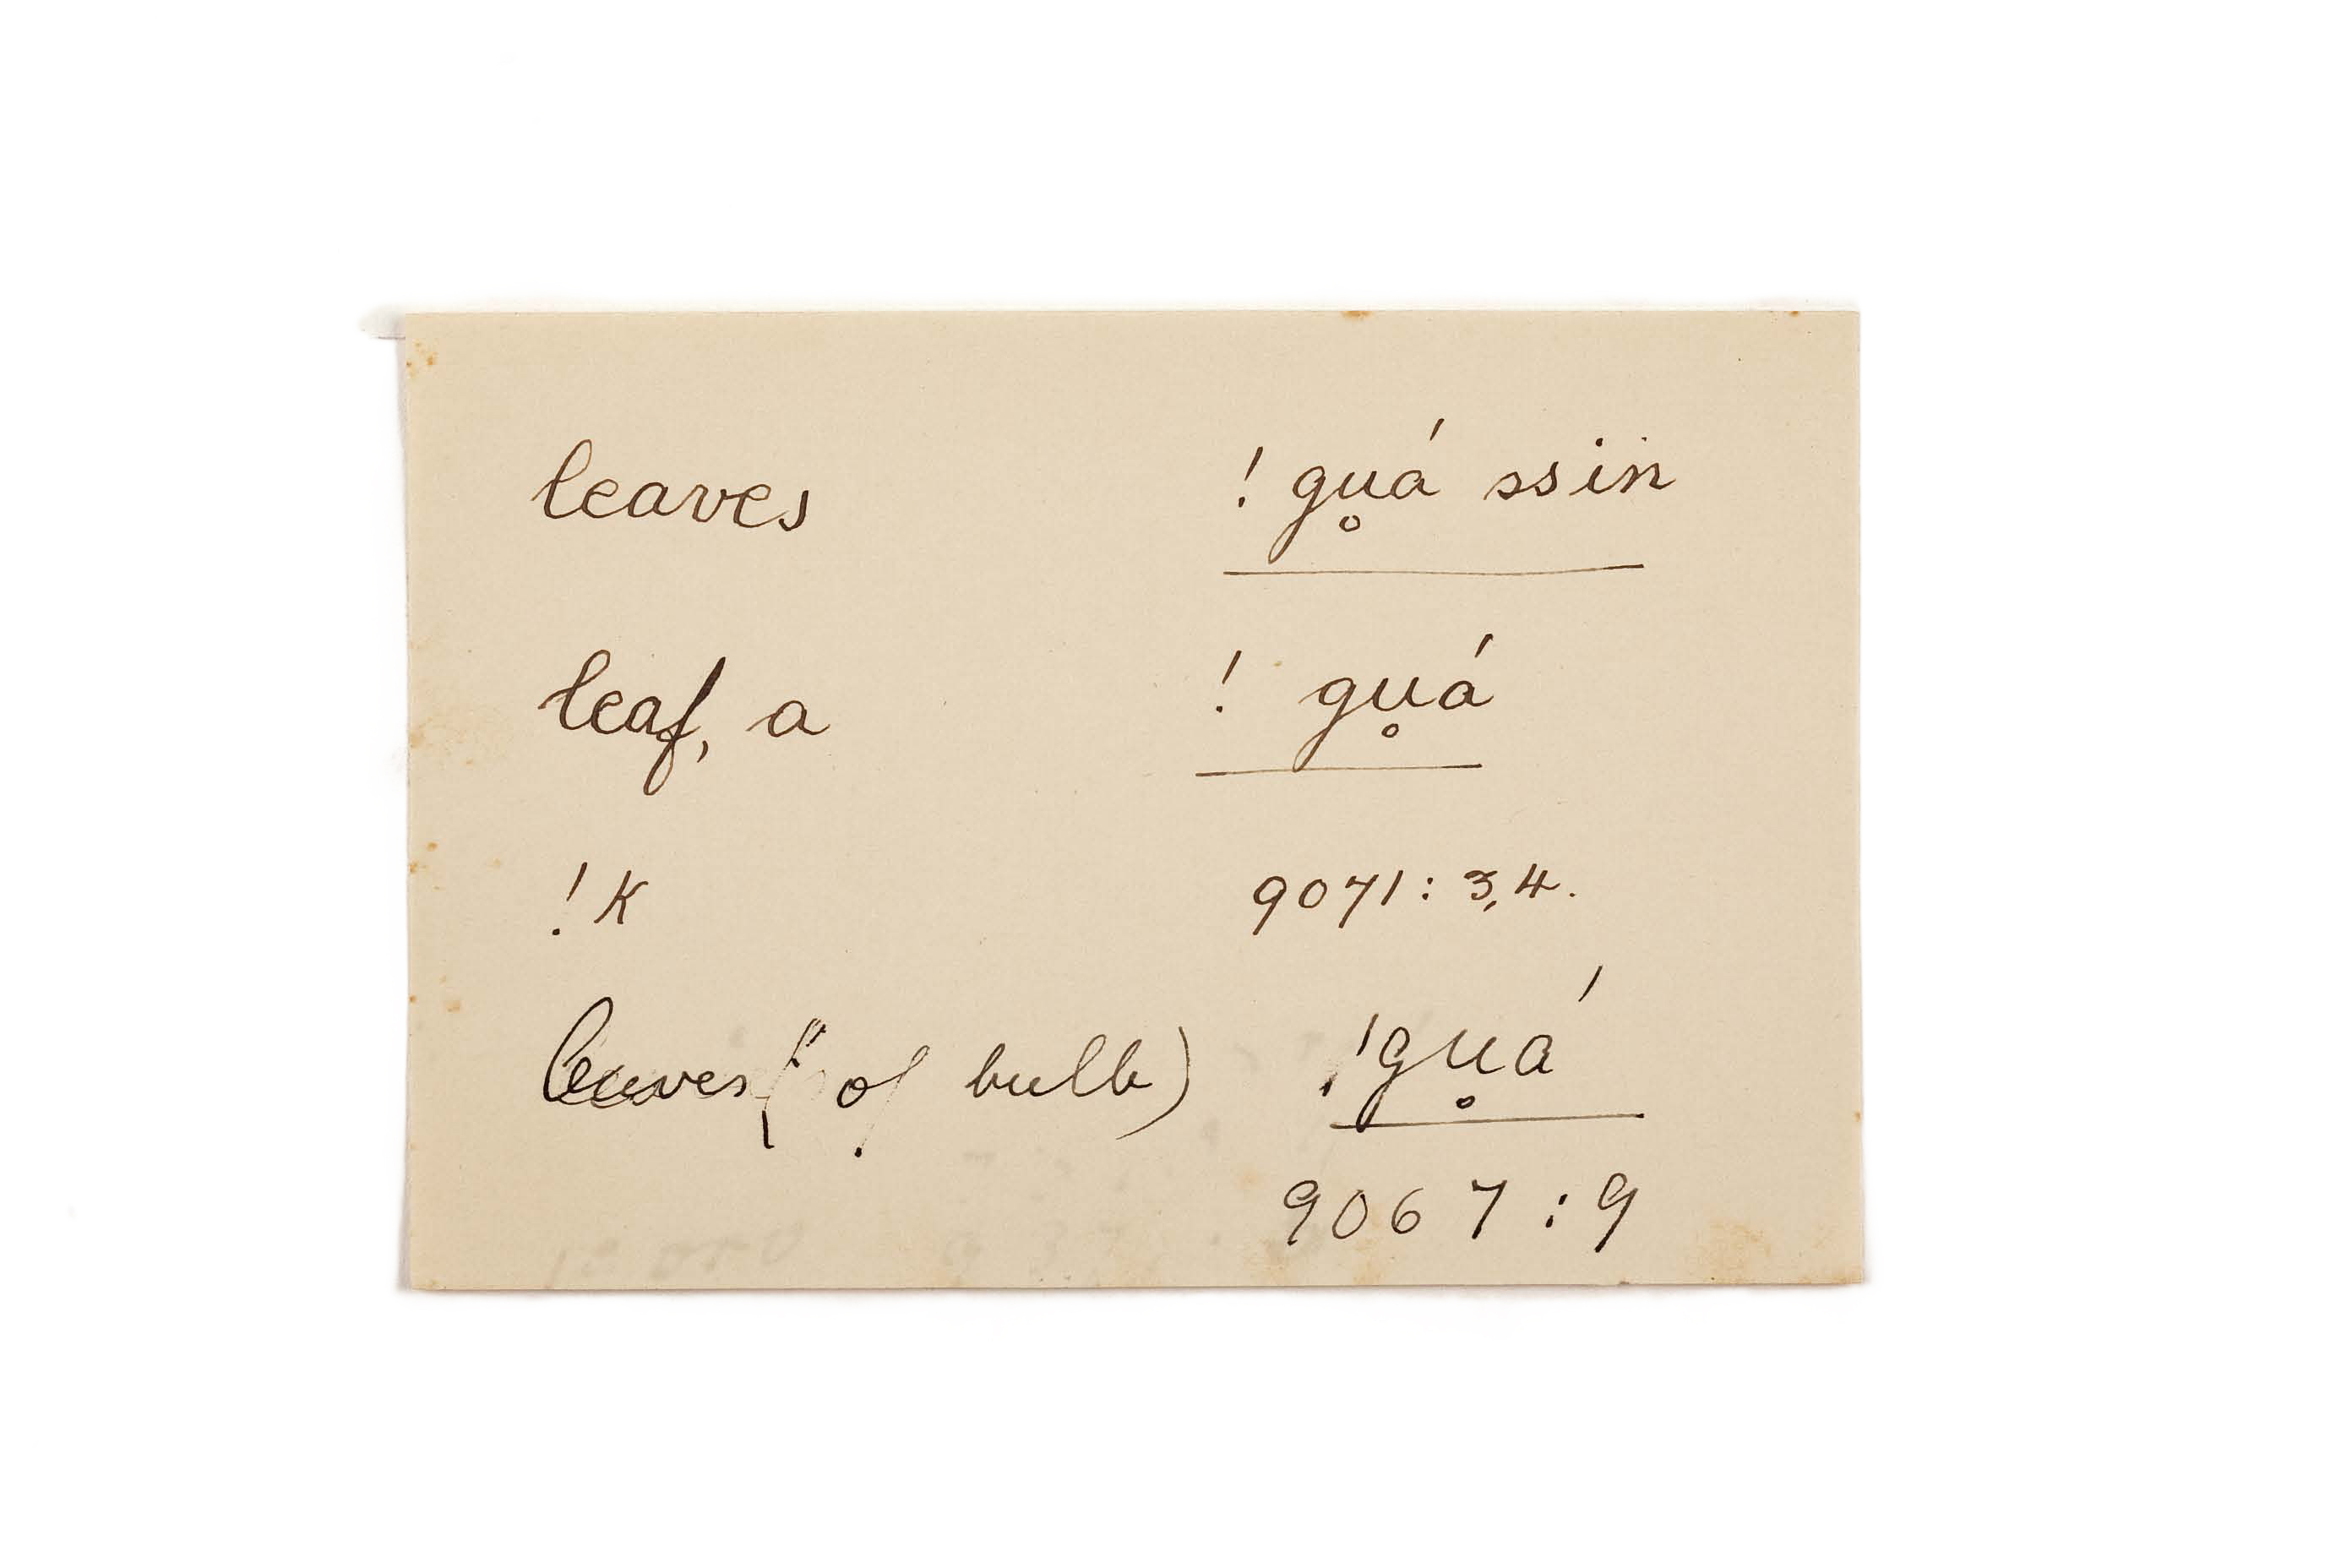 leaves ! gu̥á ssin
leaf, a ! gu̥á
!k 9071 : 3,4.
leaves (" of bulb) !gu̥á
9067 : 9